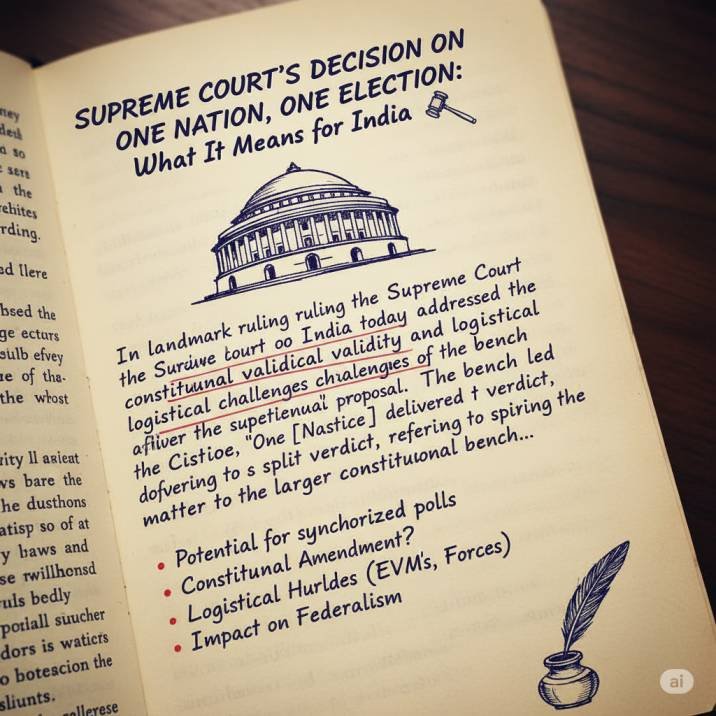 SUPREME COURT'S DECISION ON
ONE NATION, ONE ELECTION:
What It Means for India
In landmark ruling ruling the Supreme Court
the Suraiwe tourt oo India today addressed the
constituunal validical validity and logistical
logistical challenges chralengies of the bench
afiiver the supetienual proposal. The bench led
the Cistioe, "One [Nastice] delivered t verdict,
dofvering to s split verdict, refering to spiring the
matter to the larger constituuonal bench...
• Potential for synchorized polls
• Constitunal Amendment?
• Logistical Hurldes (EVM's, Forces)
• Impact on Federalism
ney
a so
sere
the
rehites
rding.
ad llere
bsed the
ge ecturs
suib efvey
ue of tha-
the whost
rity ll asieat
vs bare the
he dusthons
atisp so of at
y baws and
se rwillhonsd
uls bedly
potlall suucher
dors is waticrs
o botescion the
sliunts.
callerese
ai